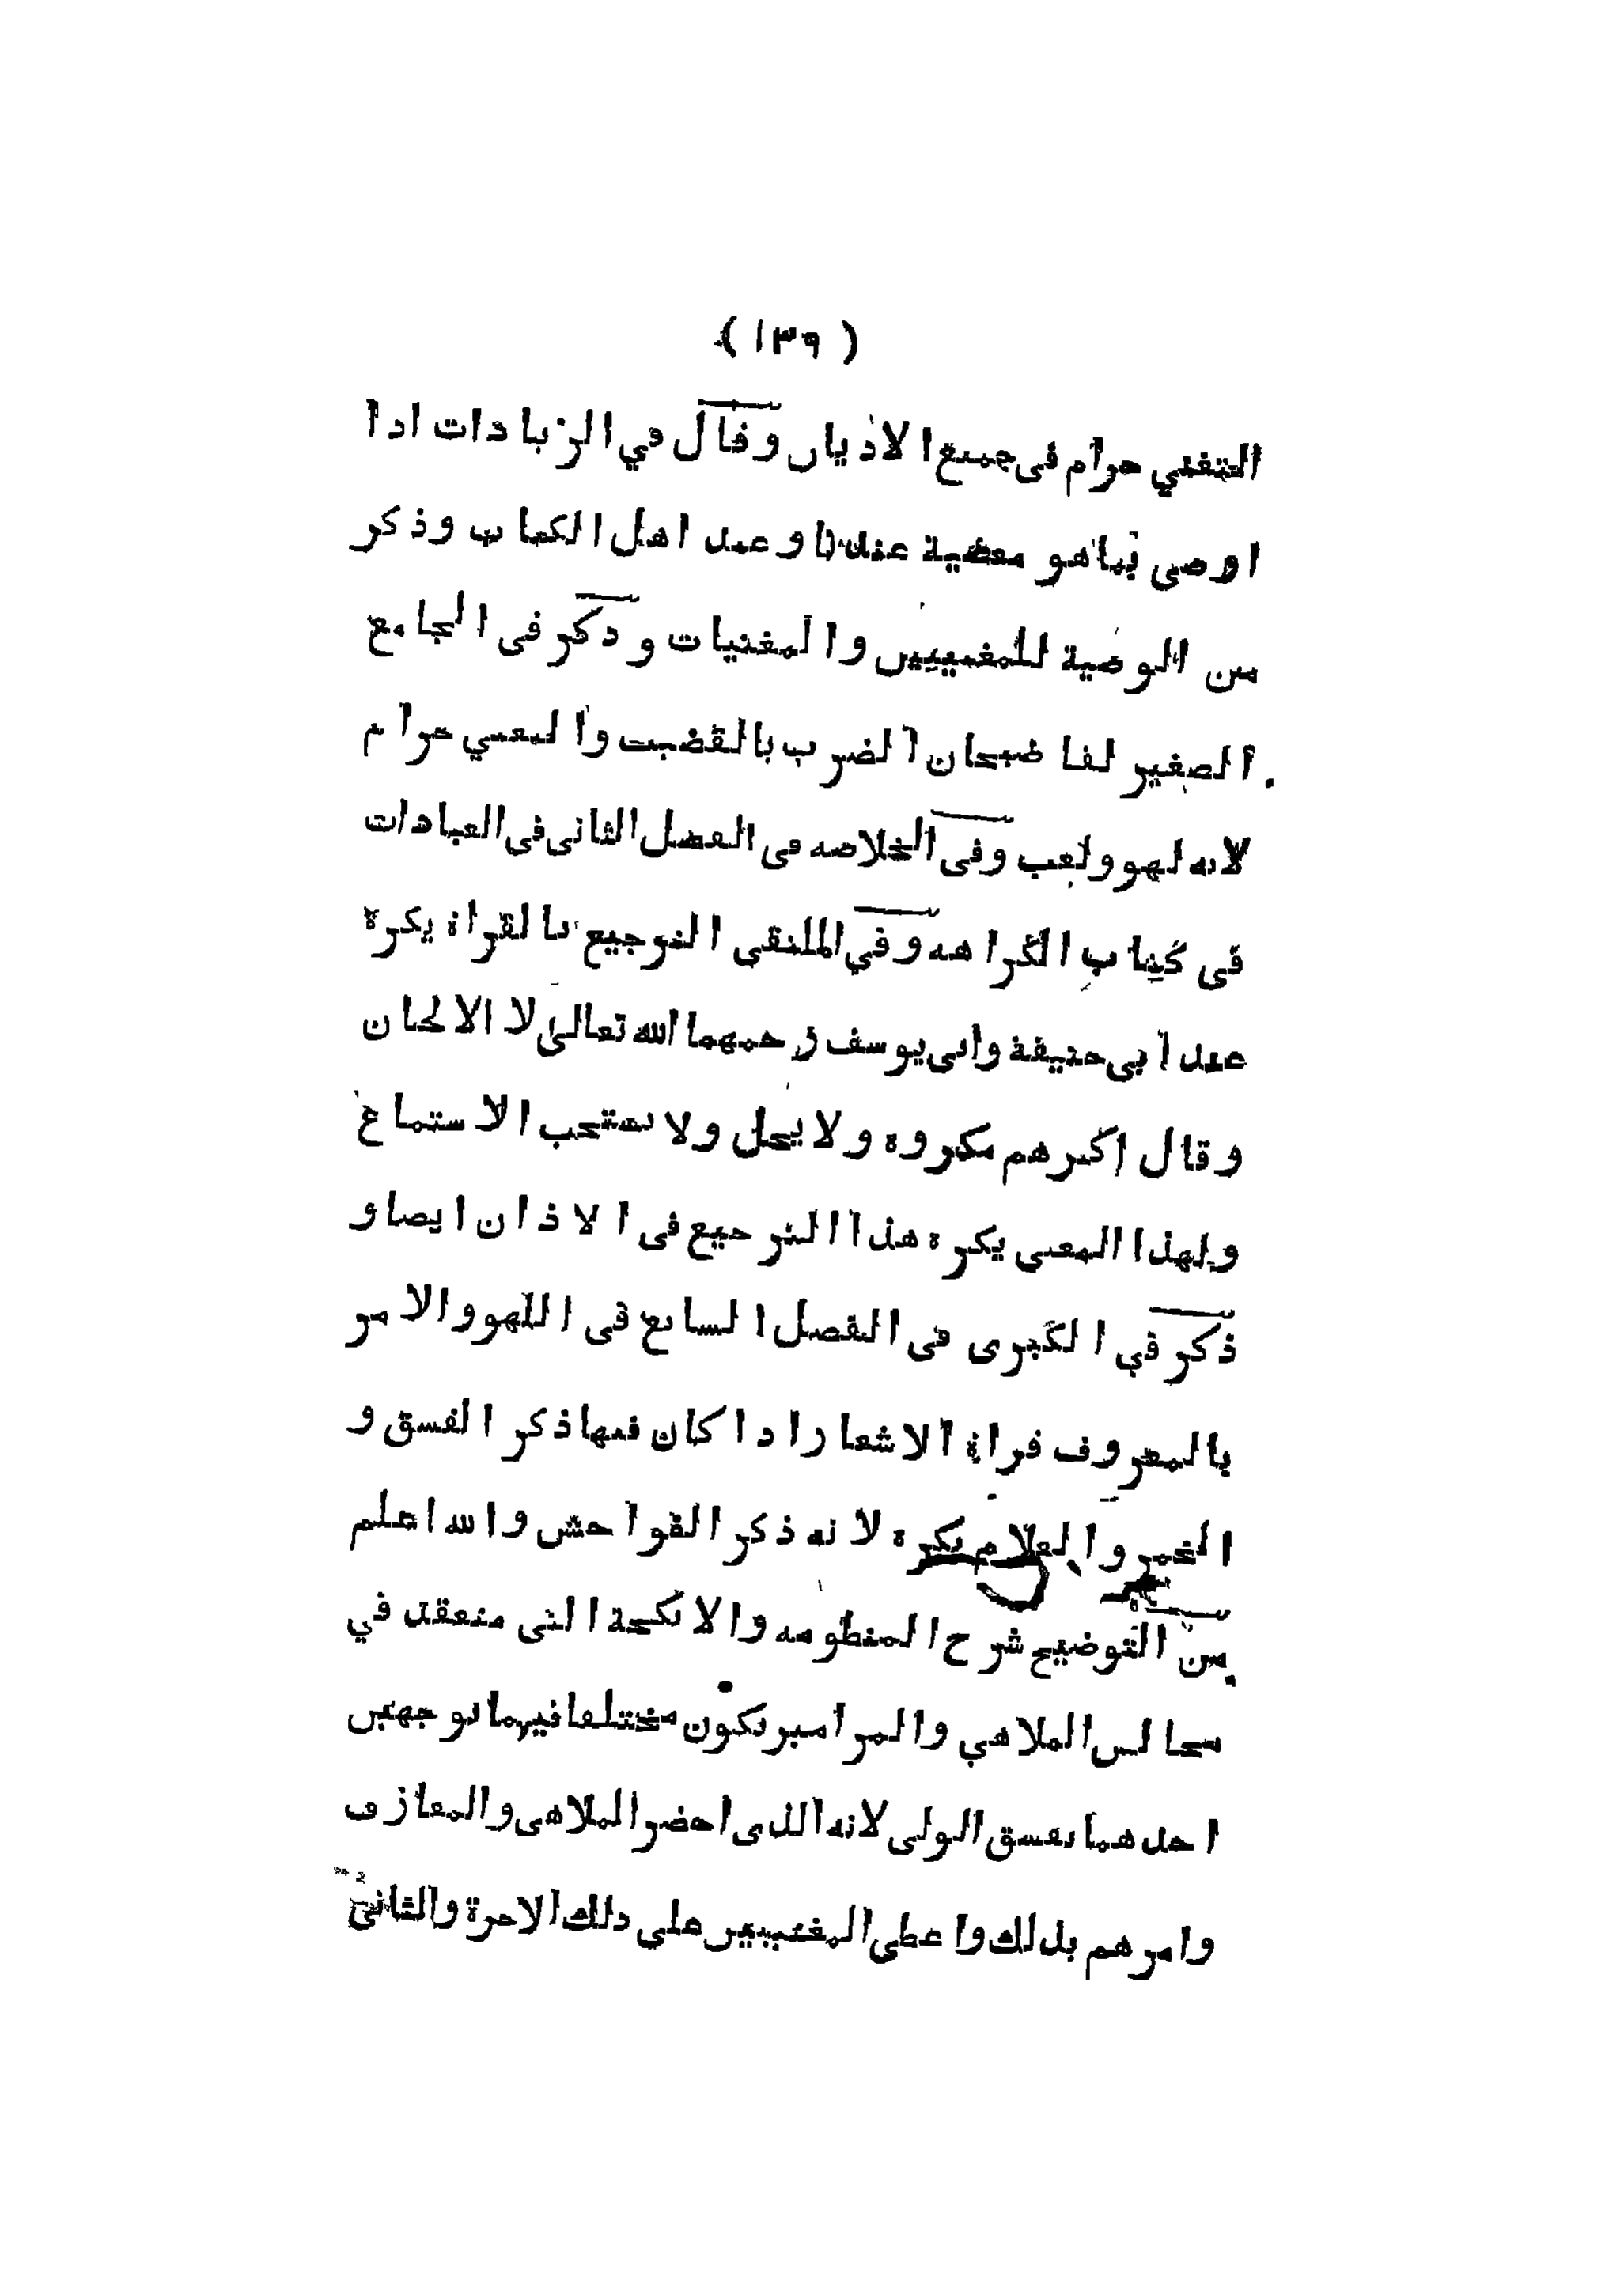 ( ١٣٩ )
التغني حرام فى جميع الاديان وقال في الزيادات اذا
اوصى بما هو معصية عندنا وعند اهل الكتاب وذكر
من الوصية للمغنيين والمغنيات وذكر فى الجامع
الصغير لقاضيخان الضرب بالقضيب والتغني حرام
لانه لهو ولعب وفى الخلاصه فى الفصل الثانى فى العبادات
فى كتاب الكراهه وفي الملتقى الترجيع بالقراة يكره
عند ابى حنيفة وابى يوسف رحمهما الله تعالى لا الالحان
وقال اكثرهم مكروه ولا يحل ولا يستحب الاستماع
ولهذا المعنى يكره هذا الترجيع فى الاذان ايضا و
ذكر في الكبرى فى الفصل السابع فى اللهو والامر
بالمعروف قراة الاشعار اذا كان فيها ذكر الفسق و
الخمر والغلام يكره لانه ذكر الفواحش والله اعلم
من التوضيح شرح المنظومه والانكحة التى منعقد في
مجالس الملاهي والمزامير تكون مختلفا فيهما بوجهين
احدهما بفسق الولى لانه الذى احضر الملاهى والمعازف
وامرهم بذلك واعطى المغنيين على ذلك الاجرة والثانى